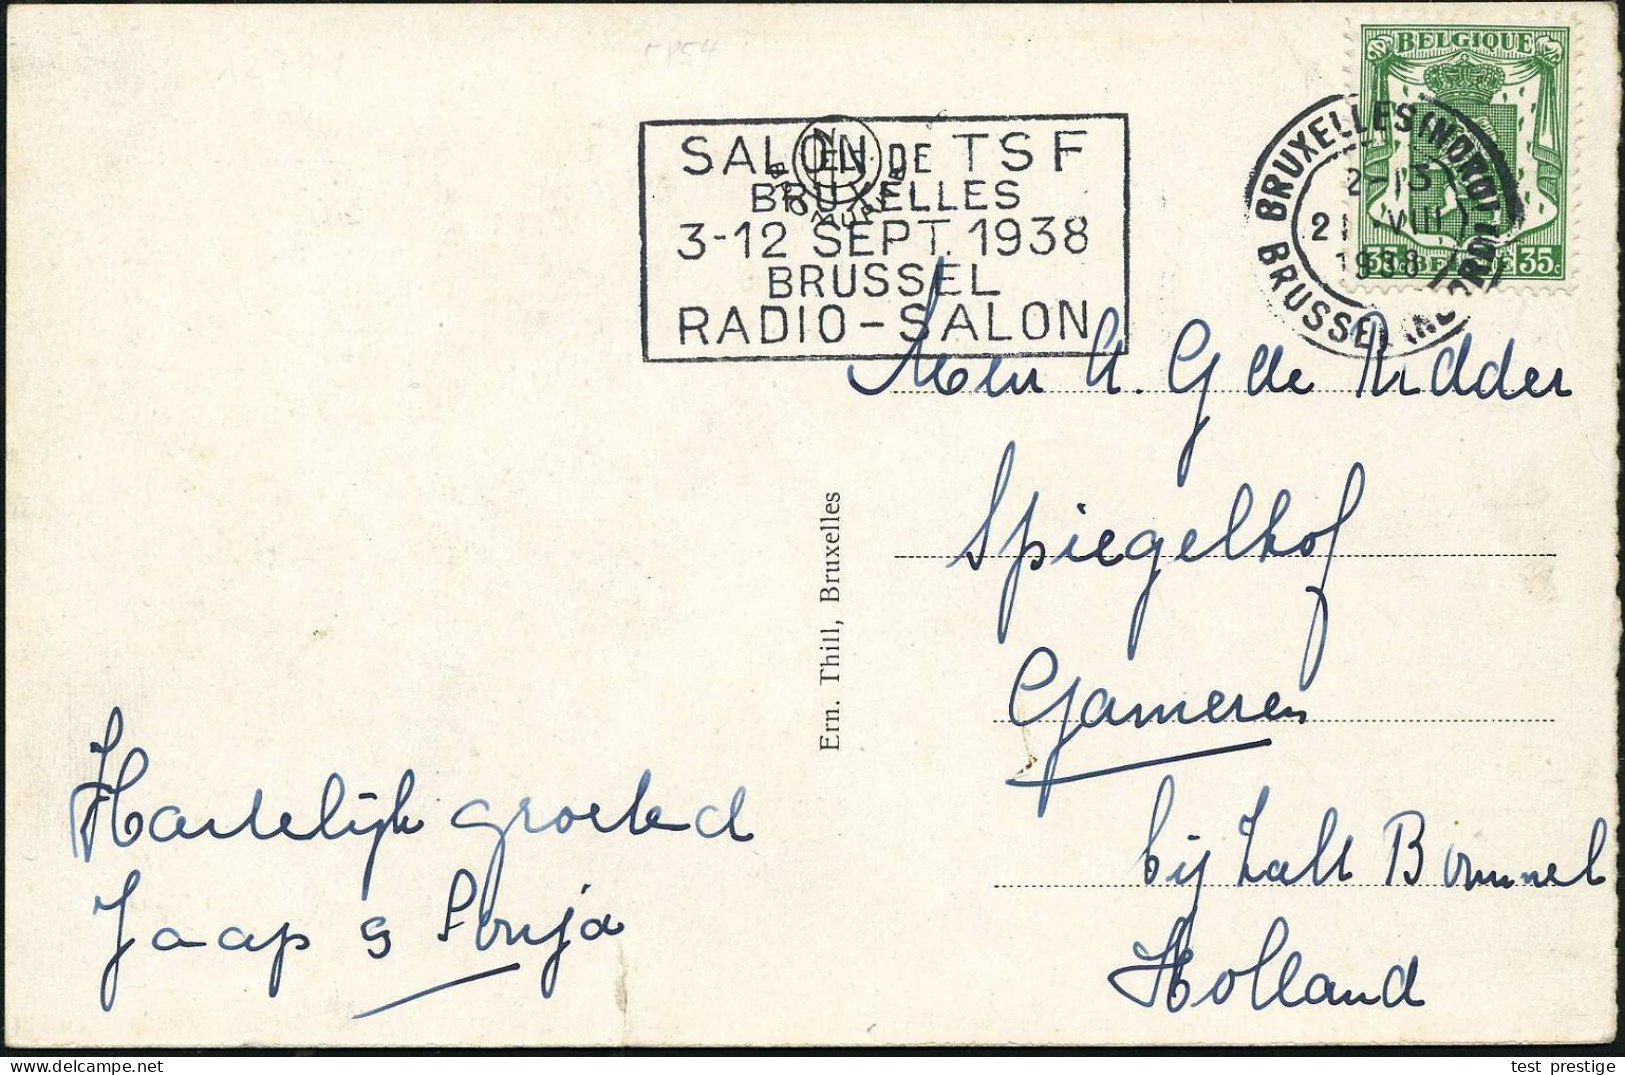 5P54
BELGIQUE
SALON DE TSF
BRUXELLES
3-12 SEPT. 1938
BRUSSEL
RADIO-SALON
BRUXELLES (NORD)
2-13
21 VIII
1938
BRUSSEL (NOORD)
35c BELGIË 35c
de Ridder
Spiegelhof
Gameren
bij Zalt Bommel
Holland
Ern. Thill, Bruxelles
Hartelijk groetend
Jaap & Sonja
test_prestige